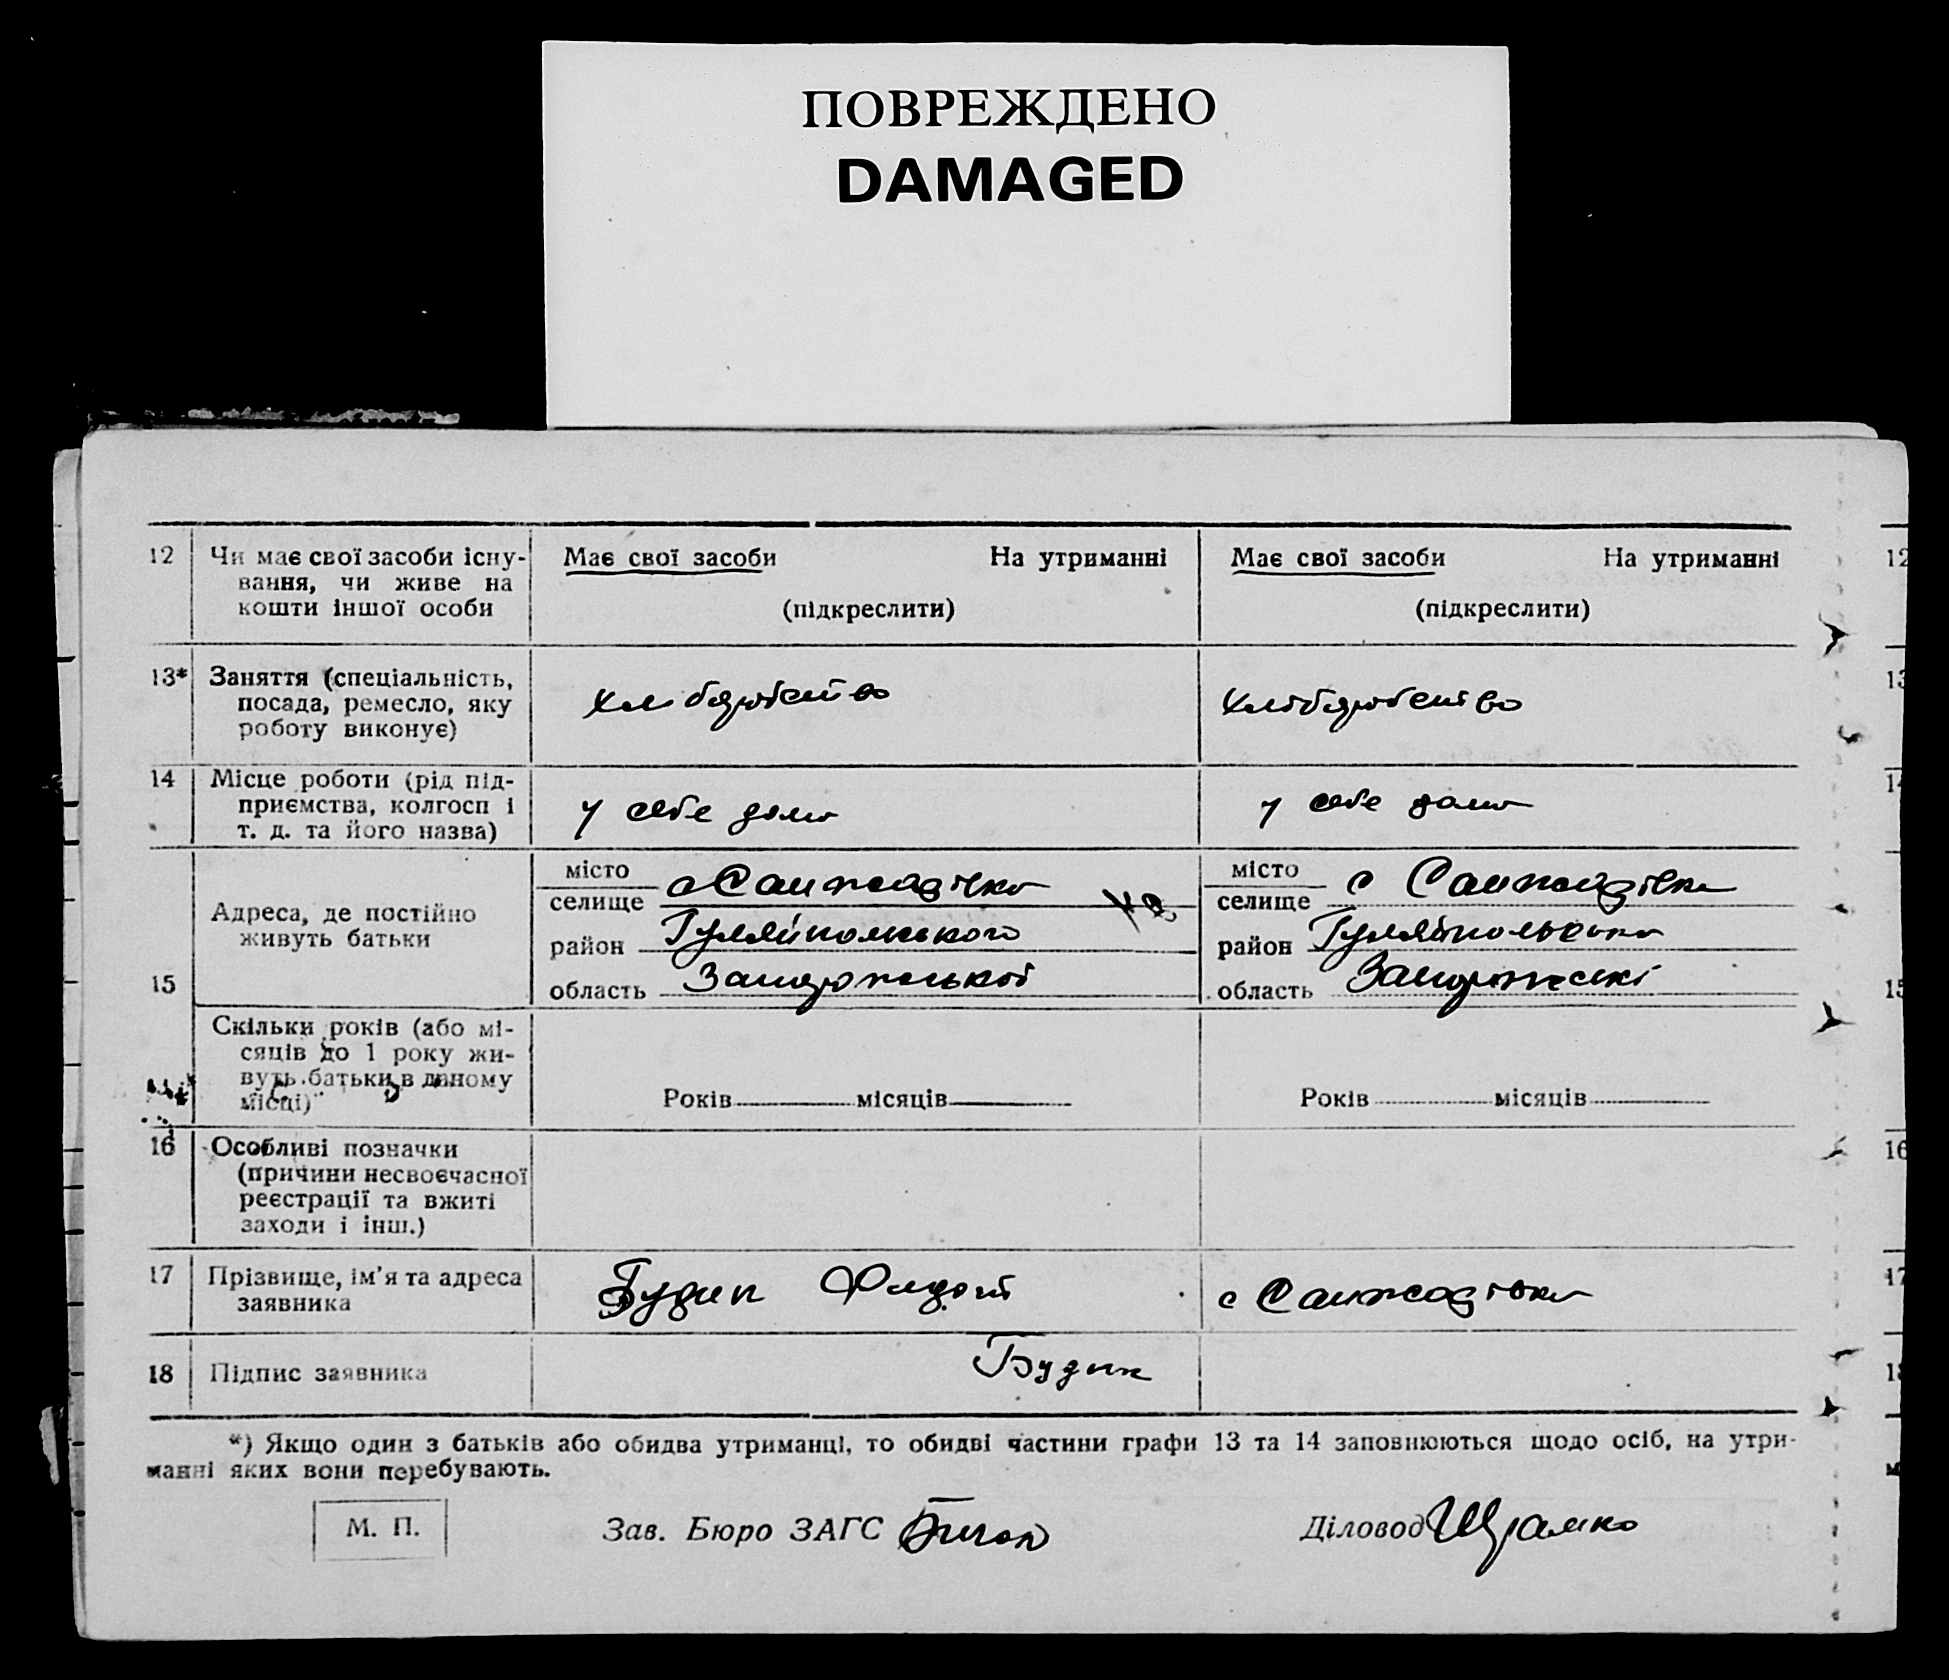 ПОВРЕЖДЕНО
DAMAGED
12 Чи має свої засоби існу-
вання, чи живе на
кошти іншої особи
Має свої засоби На утриманні
(підкреслити)
Має свої засоби На утриманні
(підкреслити)
12
13* Заняття (спеціальність,
посада, ремесло, яку
роботу виконує)
хлібаробство
хлібаробство
13
14 Місце роботи (рід під-
приємства, колгосп і
т. д. та його назва)
у себе дома
у себе дома
14
15 Адреса, де постійно
живуть батьки
місто
селище
район Гуляйпольського
область Запорожської
місто
селище
район Гуляйпольського
область
15
Скільки років (або мі-
сяців до 1 року жи-
вуть батьки в даному
місці)
Років місяців
Років місяців
16 Особливі позначки
(причини несвоєчасної
реєстрації та вжиті
заходи і інш.)
16
17 Прізвище, ім'я та адреса
заявника
17
18 Підпис заявника
18
*) Якщо один з батьків або обидва утриманці, то обидві частини графи 13 та 14 заповнюються щодо осіб, на утри-
манні яких вони перебувають.
М. П.
Зав. Бюро ЗАГС
Діловод Шрамко